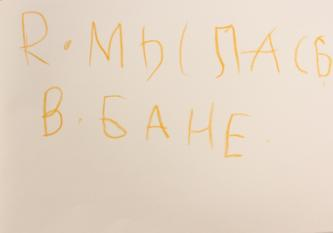 R. МЫЛАСЬ
В. БАНЕ.